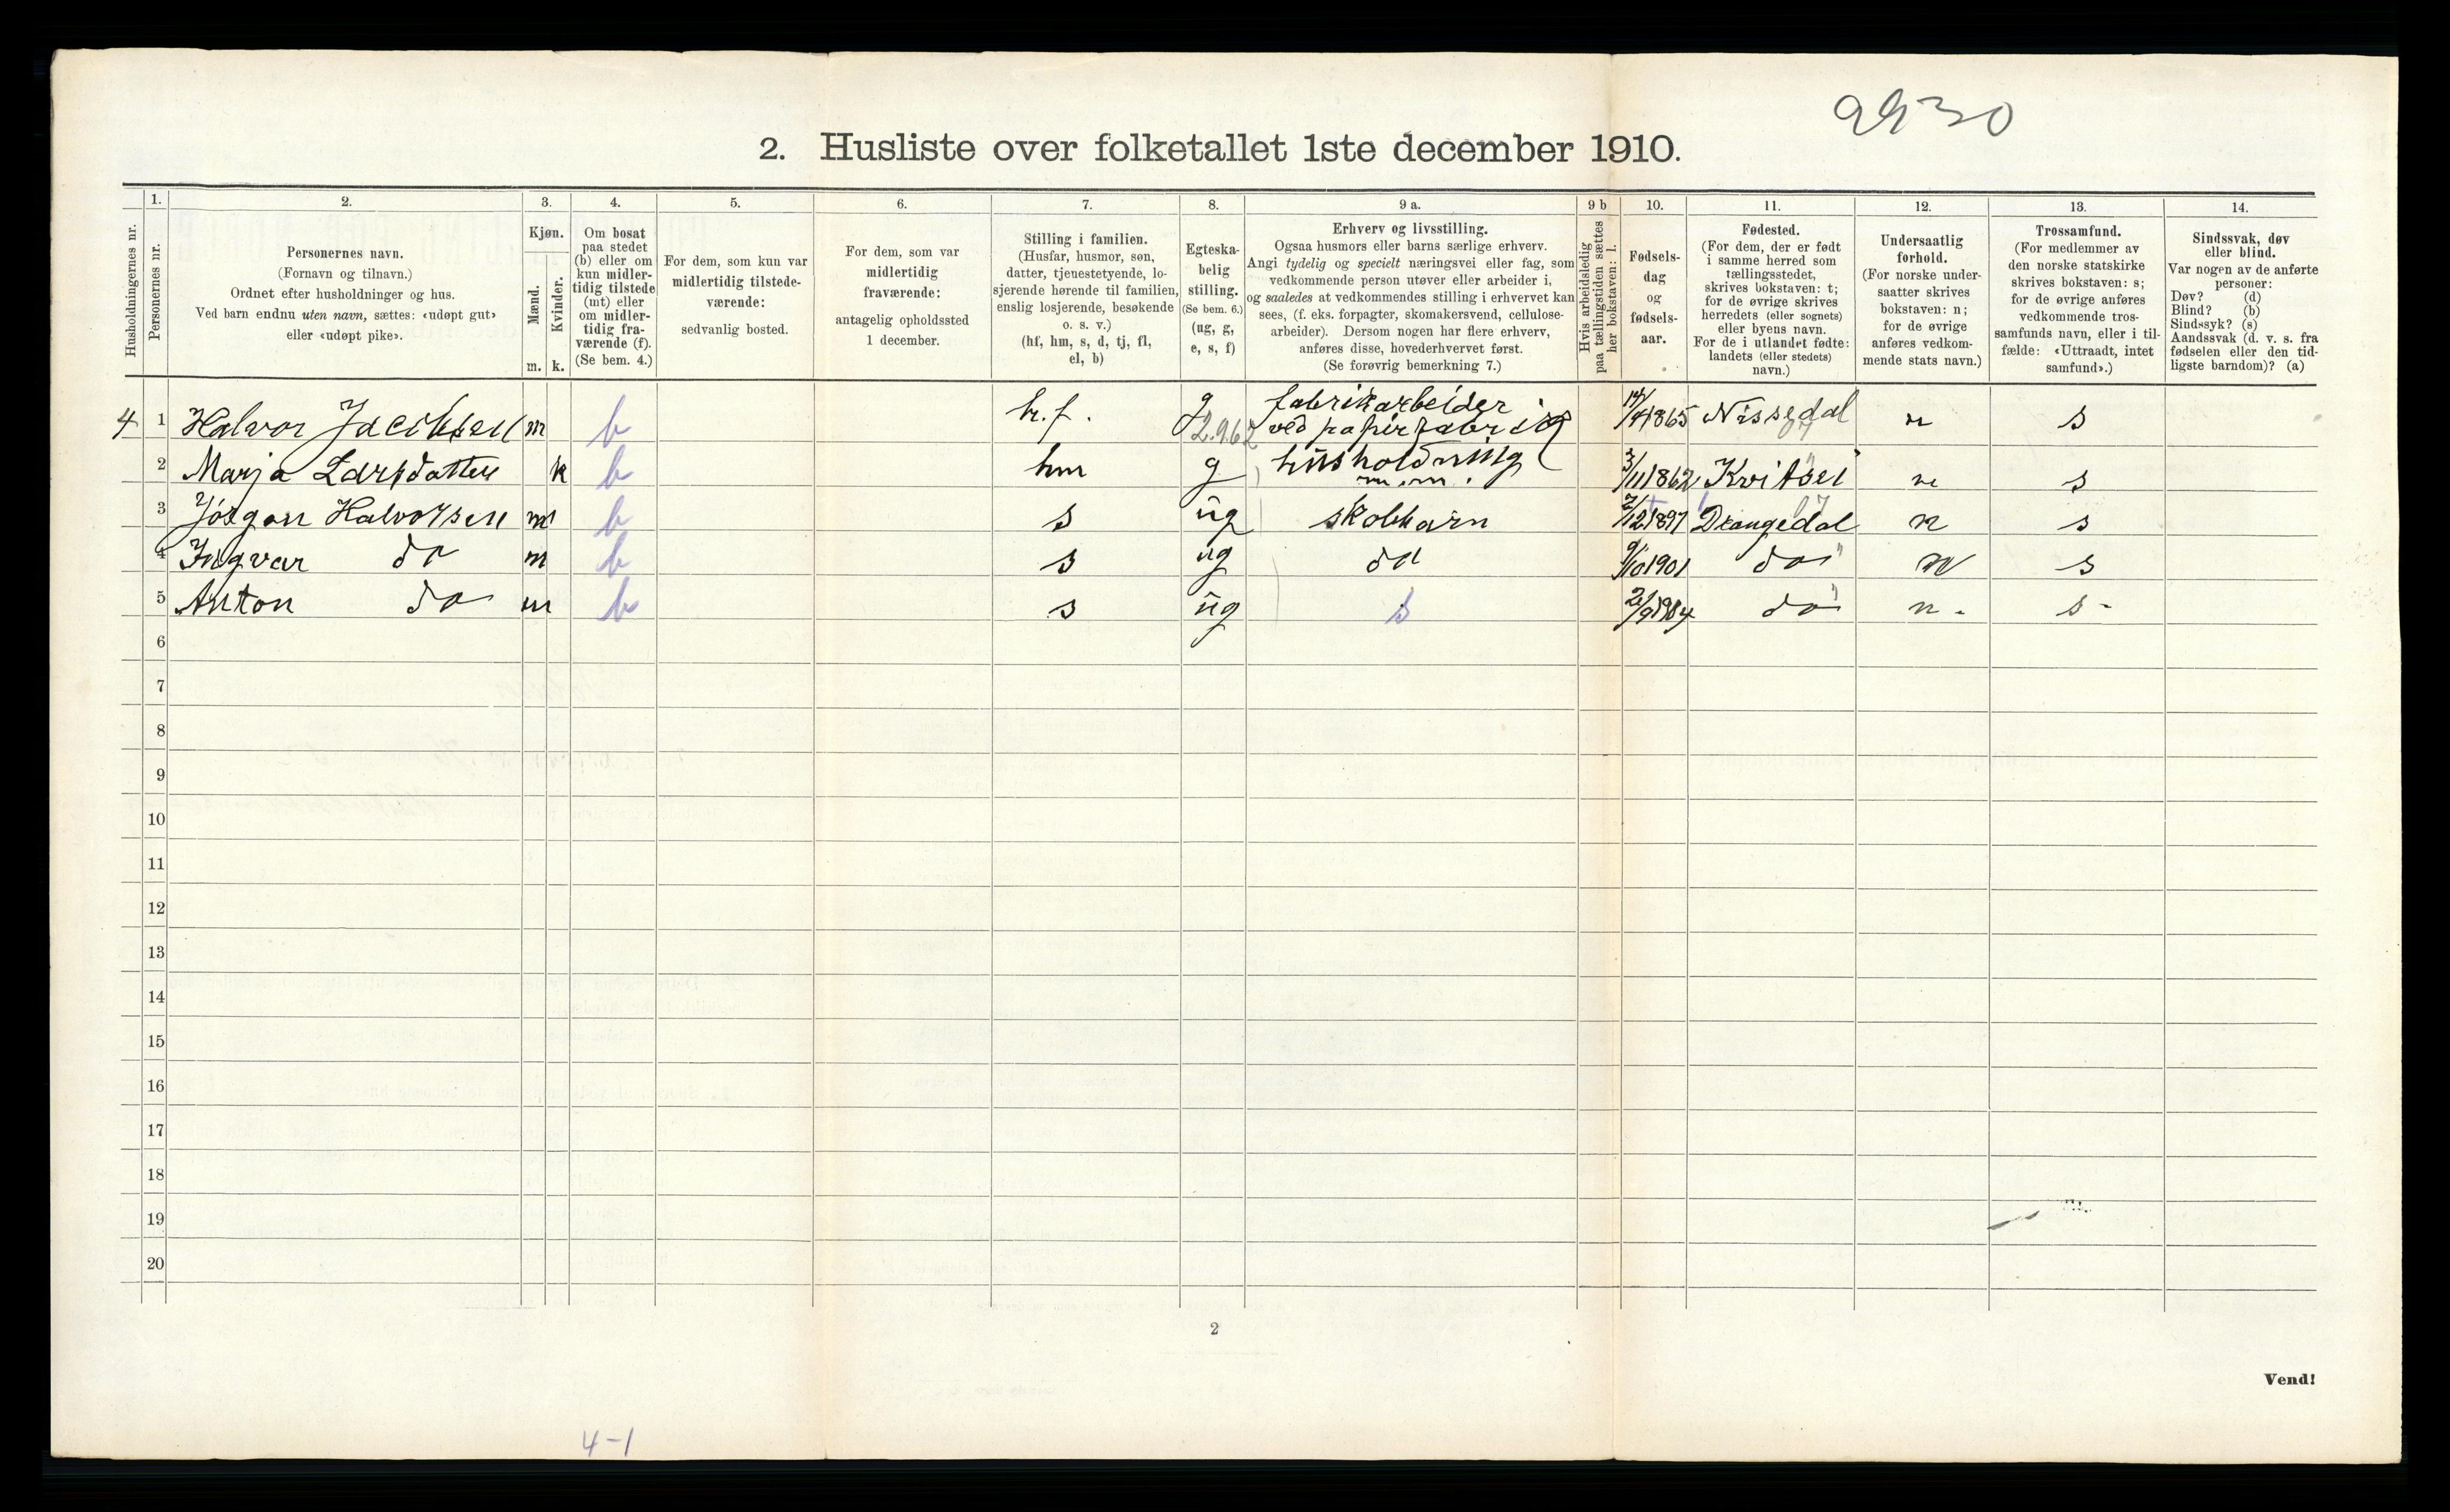 9930
2. Husliste over folketallet 1ste december 1910.
Husholdningernes nr.
1.
Personernes nr.
2.
Personernes navn.
(Fornavn og tilnavn.)
Ordnet efter husholdninger og hus.
Ved barn endnu uten navn, sættes: «udøpt gut»
eller «udøpt pike».
3.
Kjøn.
Mænd.
Kvinder.
m. k.
4.
Om bosat
paa stedet
(b) eller om
kun midler-
tidig tilstede
(mt) eller
om midler-
tidig fra-
værende (f).
(Se bem. 4.)
5.
For dem, som kun var
midlertidig tilstede-
værende:
sedvanlig bosted.
6.
For dem, som var
midlertidig
fraværende:
antagelig opholdssted
1 december.
7.
Stilling i familien.
(Husfar, husmor, søn,
datter, tjenestetyende, lo-
sjerende hørende til familien,
enslig losjerende, besøkende
o. s. v.)
(hf, hm, s, d, tj, fl,
el, b)
8.
Egteska-
belig
stilling.
(Se bem. 6.)
(ug, g,
e, s, f)
9 a.
Erhverv og livsstilling.
Ogsaa husmors eller barns særlige erhverv.
Angi tydelig og specielt næringsvei eller fag, som
vedkommende person utøver eller arbeider i,
og saaledes at vedkommendes stilling i erhvervet kan
sees, (f. eks. forpagter, skomakersvend, cellulose-
arbeider). Dersom nogen har flere erhverv,
anføres disse, hovederhvervet først.
(Se forøvrig bemerkning 7.)
9 b
Hvis arbeidsledig
paa tællingstiden sættes
her bokstaven: l.
10.
Fødsels-
dag
og
fødsels-
aar.
11.
Fødested.
(For dem, der er født
i samme herred som
tællingsstedet,
skrives bokstaven: t;
for de øvrige skrives
herredets (eller sognets)
eller byens navn.
For de i utlandet fødte:
landets (eller stedets)
navn.)
12.
Undersaatlig
forhold.
(For norske under-
saatter skrives
bokstaven: n;
for de øvrige
anføres vedkom-
mende stats navn.)
13.
Trossamfund.
(For medlemmer av
den norske statskirke
skrives bokstaven: s;
for de øvrige anføres
vedkommende tros-
samfunds navn, eller i til-
fælde: «Uttraadt, intet
samfund».)
14.
Sindssvak, døv
eller blind.
Var nogen av de anførte
personer:
Døv? (d)
Blind? (b)
Sindssyk? (s)
Aandssvak (d. v. s. fra
fødselen eller den tid-
ligste barndom)? (a)
4 1 Halvor Jacobsen m b h.f. g 2.9.62 fabrikarbeider ved papirfabrik 14/4 1865 Nissedal n s
2 Marja Larsdatter k b hm g husholdning m.m. 3/11 1862 Kvitsei n s
3 Jørgen Halvorsen m b s ug skolebarn 2/12 1897 Drangedal n s
4 Ingvar do m b s ug do 9/10 1901 do n s
5 Anton do m b s ug s 2/9 1904 do n. s-
6
7
8
9
10
11
12
13
14
15
16
17
18
19
20
2
Vend!
4-1